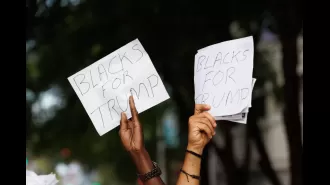 BLACKS
FOR
TRUMP
BLACKS
FOR